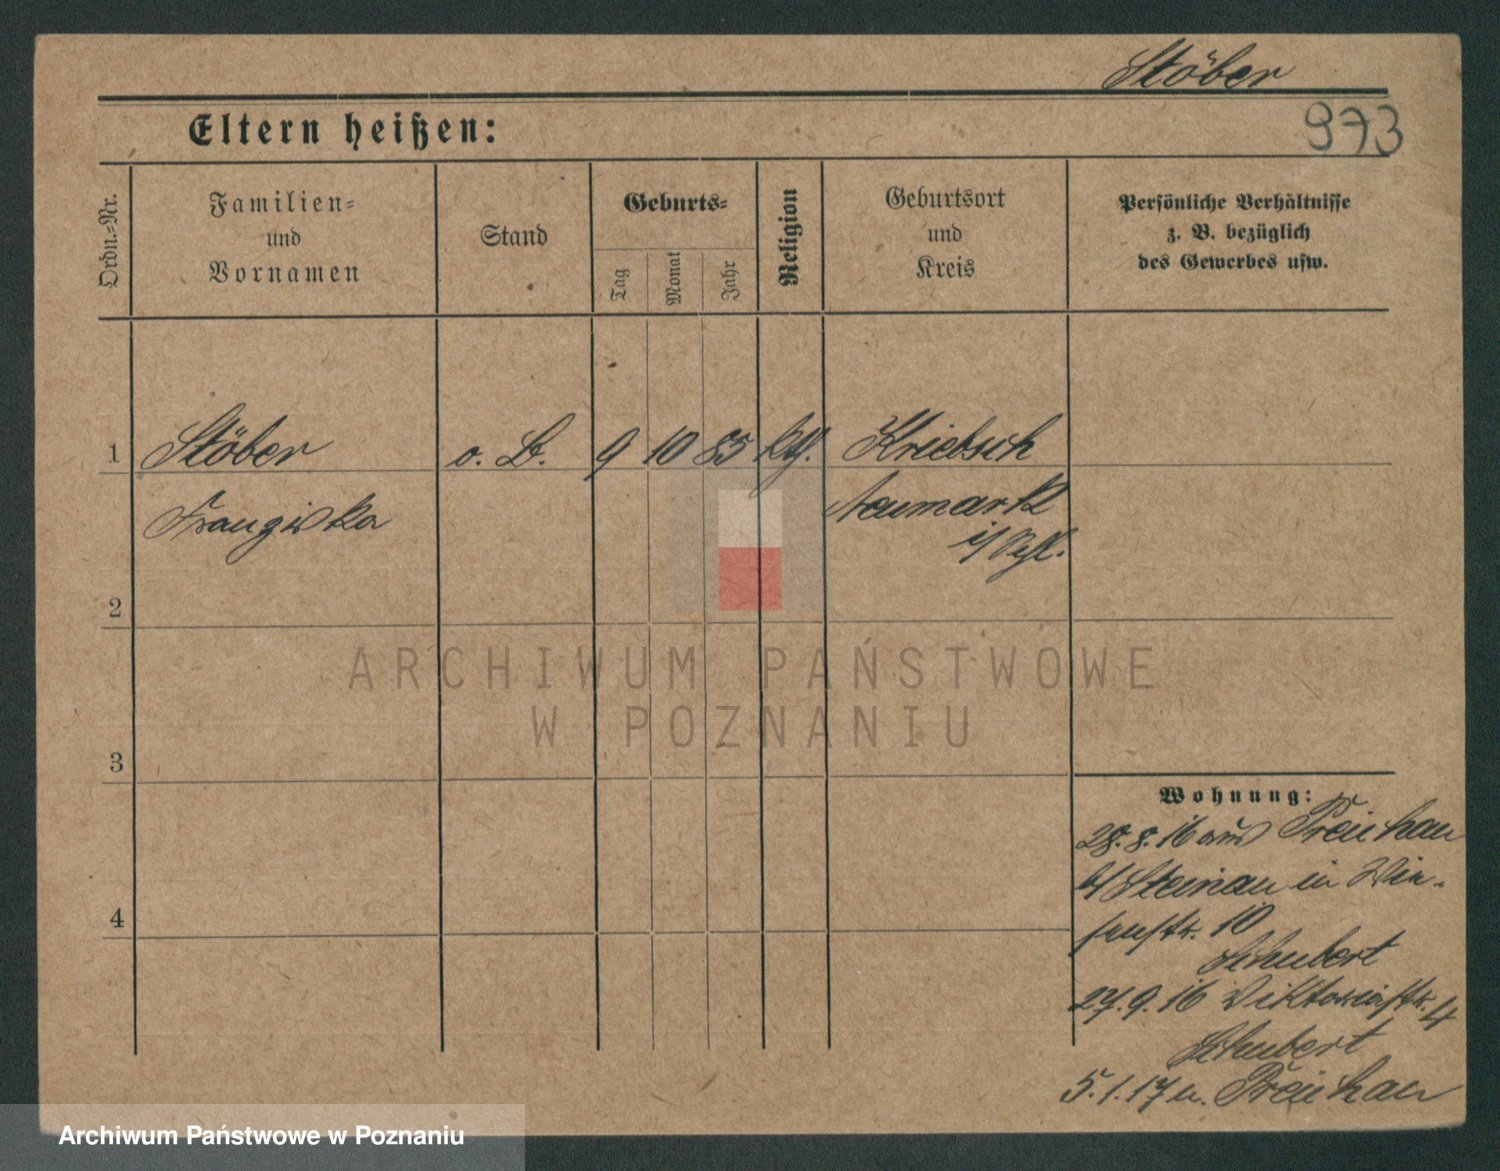 Stöber
973
Eltern heißen:
Ordn.-Nr.
Familien-
und
Vornamen
Stand
Geburts-
Tag
Monat
Jahr
Religion
Geburtsort
und
Kreis
Persönliche Verhältnisse
z. B. bezüglich
des Gewerbes usw.
1 Stöber o. B. 9 10 85 kth. Kriebsch
Franziska Neumark
i/
2
3
4
Wohnung:
28.8.16 aus Preichau
b/ Steinau in Wie-
senstr. 10
Schubert
27.9.16 Viktoriastr. 4
Schubert
5.1.17 n. Preichau
ARCHIWUM PAŃSTWOWE
W POZNANIU
Archiwum Państwowe w Poznaniu